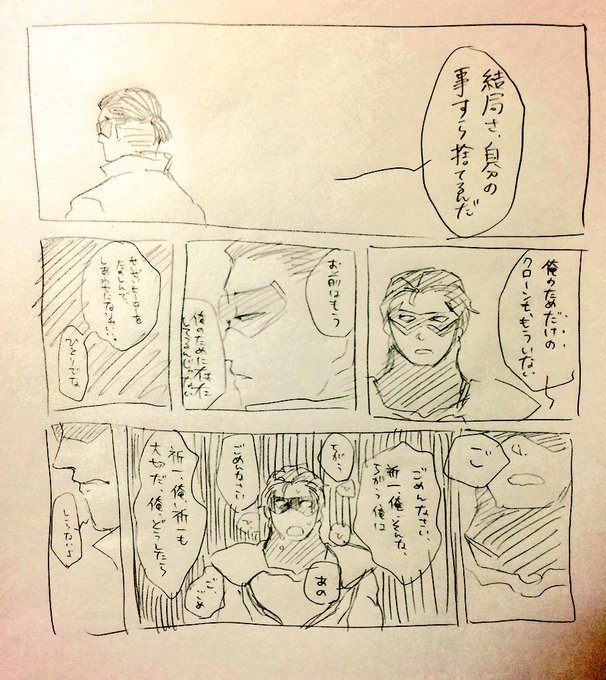 結局さ、自分の
事すら捨てるんだ
俺のためだけの
クローンも、もういない
お前はもう
俺のために
せいぜいヒーローを
たのしんで、
しあわせになりなよ、
ひとりでな
ご
ごめんなさい、
祈一、俺、そんな、
ちがう、俺は
ちがう
ごめんなさい
あの
ご
ごめ
祈一、俺、祈一も
大切だ、俺、どうしたら
しらないよ